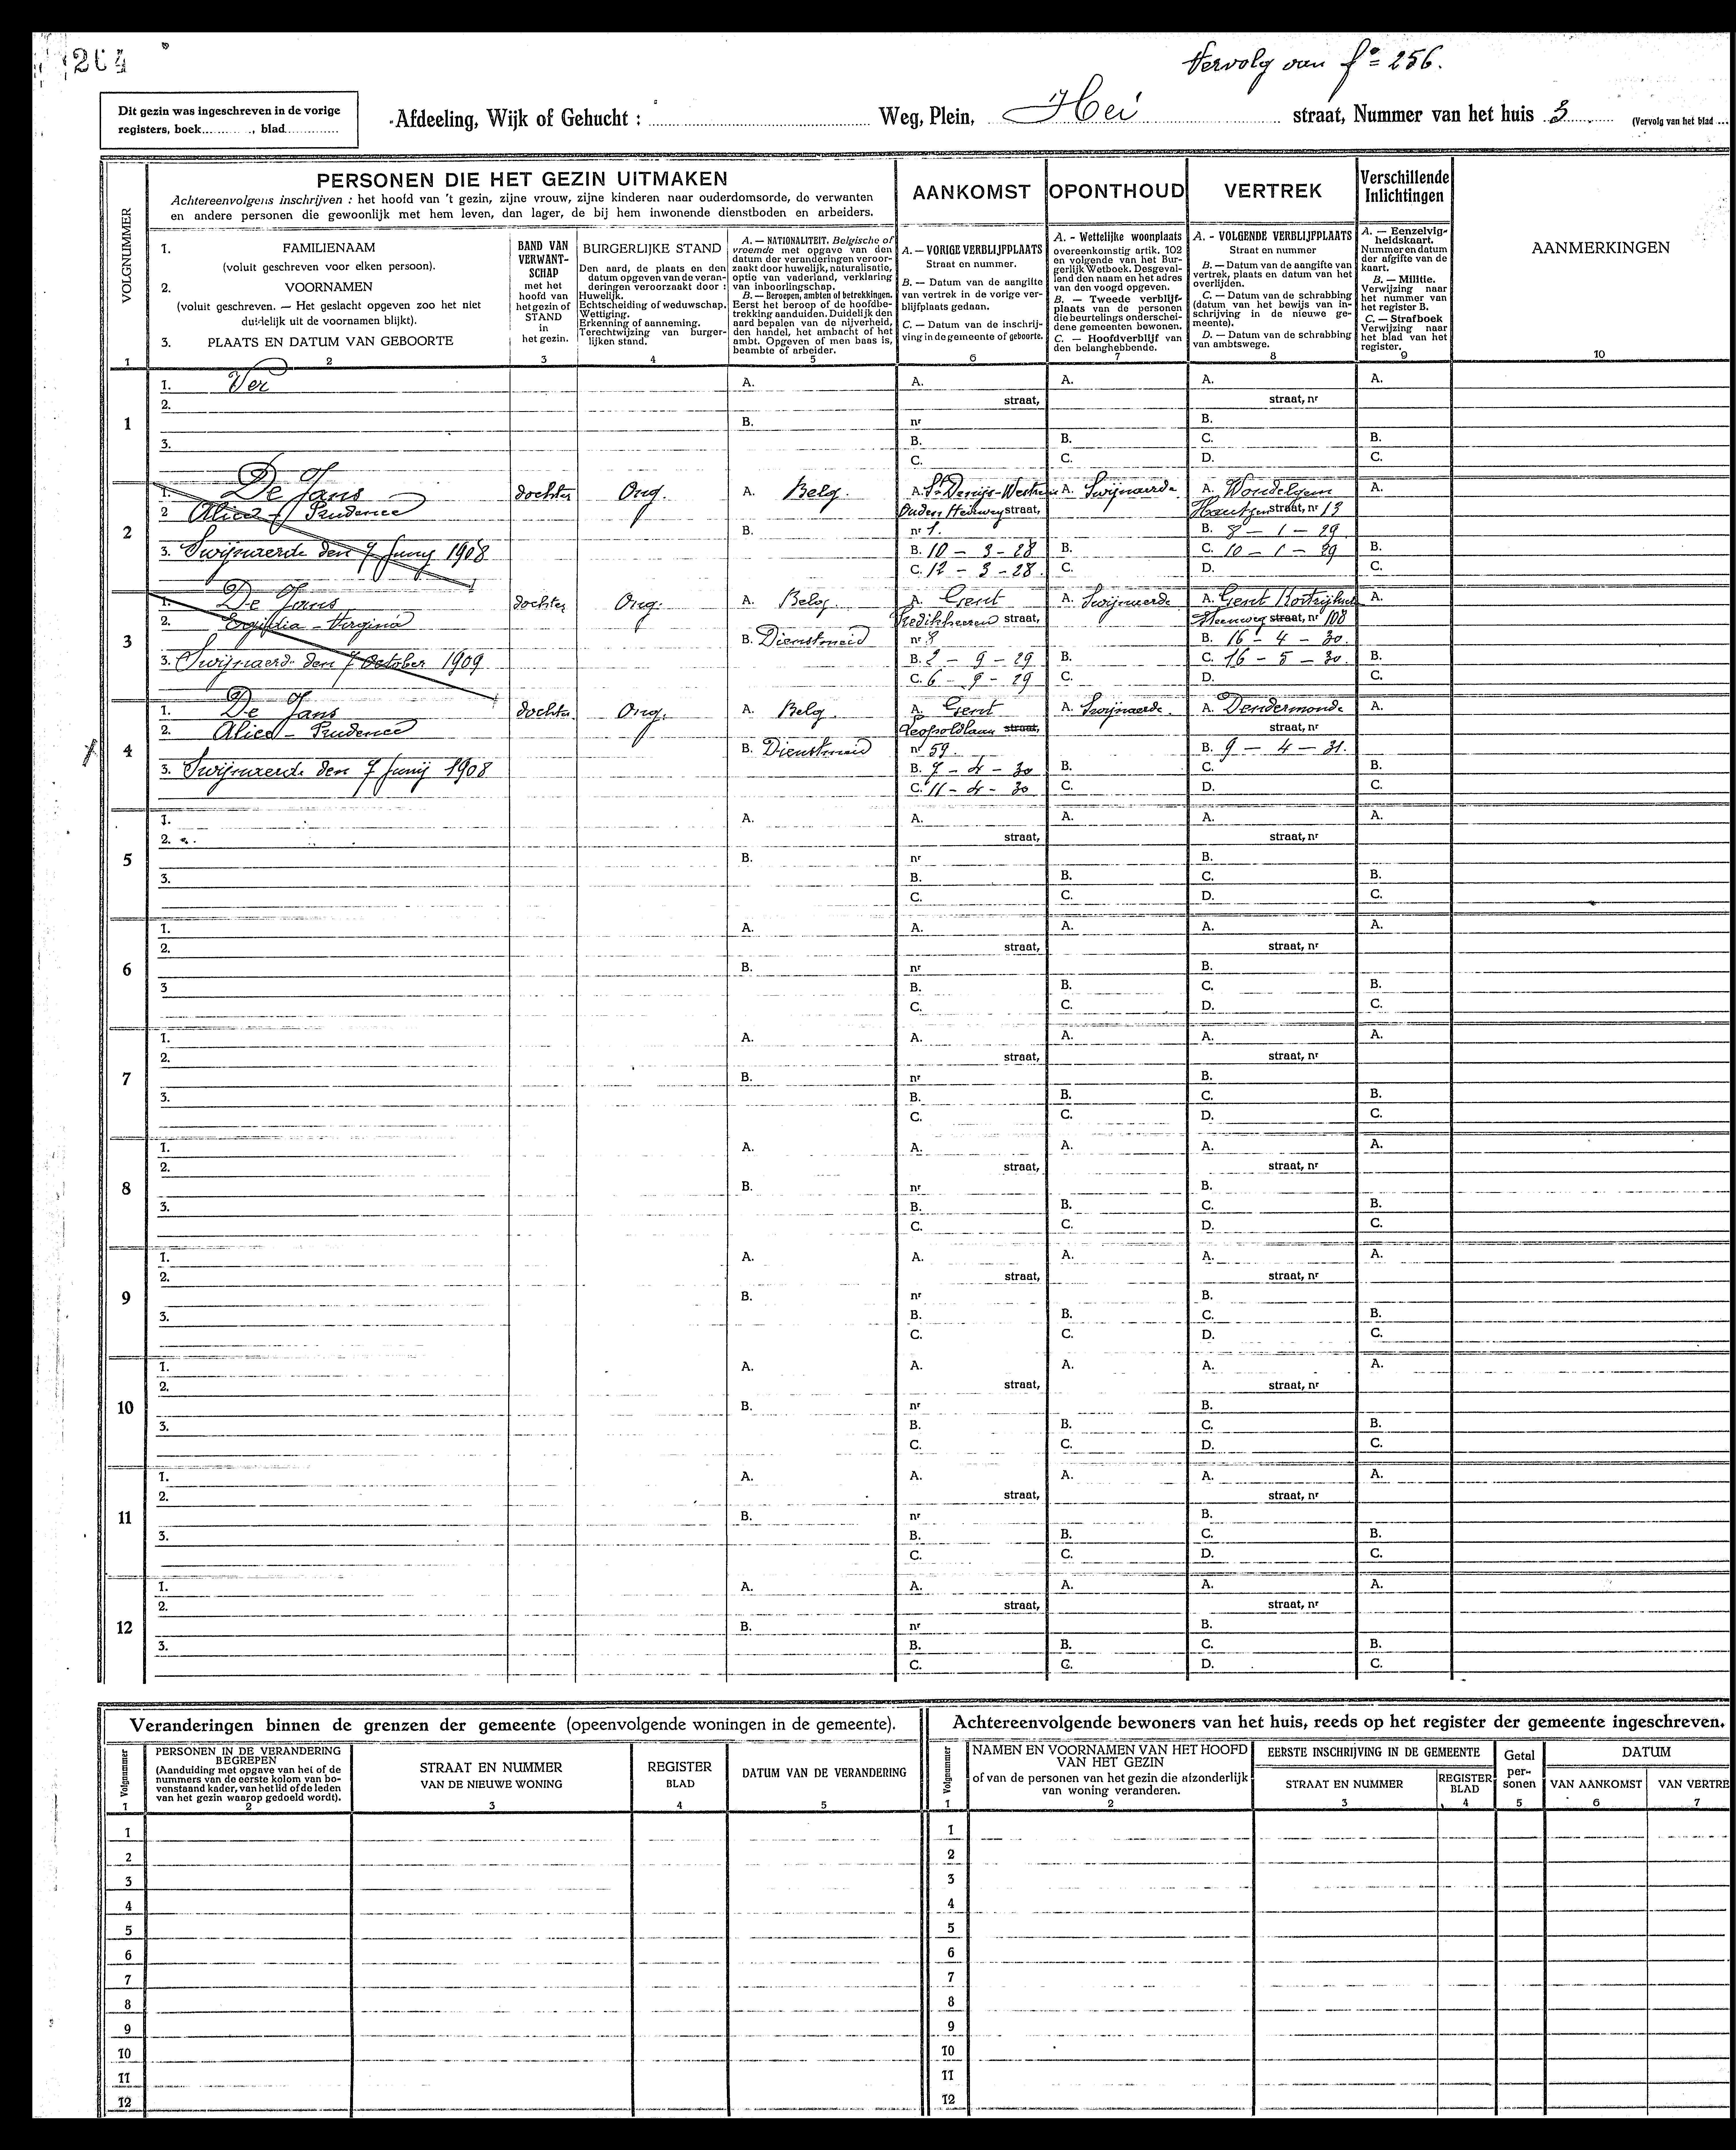 204
Vervolg van f° 256.
Dit gezin was ingeschreven in de vorige
registers, boek..........., blad.............
Afdeeling, Wijk of Gehucht :
Weg, Plein, Hei straat, Nummer van het huis 3
(Vervolg van het blad
VOLGNUMMER
1
PERSONEN DIE HET GEZIN UITMAKEN
Achtereenvolgens inschrijven : het hoofd van 't gezin, zijne vrouw, zijne kinderen naar ouderdomsorde, de verwanten
en andere personen die gewoonlijk met hem leven, dan lager, de bij hem inwonende dienstboden en arbeiders.
1. FAMILIENAAM
(voluit geschreven voor elken persoon).
2. VOORNAMEN
(voluit geschreven. — Het geslacht opgeven zoo het niet
duidelijk uit de voornamen blijkt).
3. PLAATS EN DATUM VAN GEBOORTE
2
BAND VAN
VERWANT-
SCHAP
met het
hoofd van
het gezin of
STAND
in
het gezin.
3
BURGERLIJKE STAND
Den aard, de plaats en den
datum opgeven van de veran-
deringen veroorzaakt door :
Huwelijk.
Echtscheiding of weduwschap.
Wettiging.
Erkenning of aanneming.
Terechtwijzing van burger-
lijken stand.
4
A. — NATIONALITEIT. Belgische of
vreemde met opgave van den
datum der veranderingen veroor-
zaakt door huwelijk, naturalisatie,
optie van vaderland, verklaring
van inboorlingschap.
B. — Beroepen, ambten of betrekkingen.
Eerst het beroep of de hoofdbe-
trekking aanduiden. Duidelijk den
aard bepalen van de nijverheid,
den handel, het ambacht of het
ambt. Opgeven of men baas is,
beambte of arbeider.
5
AANKOMST
A. — VORIGE VERBLIJFPLAATS
Straat en nummer.
B. — Datum van de aangifte
van vertrek in de vorige ver-
blijfplaats gedaan.
C. — Datum van de inschrij-
ving in de gemeente of geboorte.
6
OPONTHOUD
A. - Wettelijke woonplaats
overeenkomstig artik. 102
en volgende van het Bur-
gerlijk Wetboek. Desgeval-
lend den naam en het adres
van den voogd opgeven.
B. — Tweede verblijf-
plaats van de personen
die beurtelings onderschei-
dene gemeenten bewonen.
C. — Hoofdverblijf van
den belanghebbende.
7
VERTREK
A. - VOLGENDE VERBLIJFPLAATS
Straat en nummer
B. — Datum van de aangifte van
vertrek, plaats en datum van het
overlijden.
C. — Datum van de schrabbing
(datum van het bewijs van in-
schrijving in de nieuwe ge-
meente).
D. — Datum van de schrabbing
van ambtswege.
8
Verschillende
Inlichtingen
A. — Eenzelvig-
heidskaart.
Nummer en datum
der afgifte van de
kaart.
B. — Militie.
Verwijzing naar
het nummer van
het register B.
C. — Strafboek
Verwijzing naar
het blad van het
register.
9
AANMERKINGEN
10
1
1. Ver A. A. A. A. A.
2. straat, straat, nr
B. nr B.
3. B. B. C. B.
C. C. D. C.
2
1. De Jans dochter Ong. A. Belg. A. St Denijs-Westrem A. Swijnaerde A. Wondelgem A.
2 Alice - Prudence straat, straat, nr 13
B. nr 1. B. 8 - 1 - 29
3. Swijnaerde den 7 Junij 1908 B. 10 - 3 - 28 B. C. 10 - 1 - 29 B.
C. 12 - 3 - 28. C. D. C.
3
1. De Jans dochter Ong. A. Belg. A. Gent A. Swijnaerde A. Gent Kortrijksche A.
2. Egidia - Virginá Predikheeren straat, Steenweg straat, nr 108
B. Dienstmeid nr 8 B. 16 - 4 - 30.
3. Swijnaerde den 7 October 1909 B. 2 - 9 - 29 B. C. 16 - 5 - 30. B.
C. 6 - 9 - 29 C. D. C.
4
1. De Jans dochter Ong. A. Belg. A. Gent A. Swijnaerde A. Dendermonde A.
2. Alice - Prudence Leopoldlaan straat, straat, nr
B. Dienstmeid nr 59. B. 9 - 4 - 31.
3. Swijnaerde den 7 Junij 1908 B. 9 - 4 - 30 B. C. B.
C. 11 - 4 - 30 C. D. C.
5
1. A. A. A. A. A.
2. straat, straat, nr
B. nr B.
3. B. B. C. B.
C. C. D. C.
6
1. A. A. A. A. A.
2. straat, straat, nr
B. nr B.
3 B. B. C. B.
C. C. D. C.
7
1. A. A. A. A. A.
2. straat, straat, nr
B. nr B.
3. B. B. C. B.
C. C. D. C.
8
1. A. A. A. A. A.
2. straat, straat, nr
B. nr B.
3. B. B. C. B.
C. C. D. C.
9
1. A. A. A. A. A.
2. straat, straat, nr
B. nr B.
3. B. B. C. B.
C. C. D. C.
10
1. A. A. A. A. A.
2. straat, straat, nr
B. nr B.
3. B. B. C. B.
C. C. D. C.
11
1. A. A. A. A. A.
2. straat, straat, nr
B. nr B.
3. B. B. C. B.
C. C. D. C.
12
1. A. A. A. A. A.
2. straat, straat, nr
B. nr B.
3. B. B. C. B.
C. C. D. C.
Veranderingen binnen de grenzen der gemeente (opeenvolgende woningen in de gemeente).
Volgnummer
1
PERSONEN IN DE VERANDERING
BEGREPEN
(Aanduiding met opgave van het of de
nummers van de eerste kolom van bo-
venstaand kader, van het lid of de leden
van het gezin waarop gedoeld wordt).
2
STRAAT EN NUMMER
VAN DE NIEUWE WONING
3
REGISTER
BLAD
4
DATUM VAN DE VERANDERING
5
1
2
3
4
5
6
7
8
9
10
11
12
Achtereenvolgende bewoners van het huis, reeds op het register der gemeente ingeschreven.
Volgnummer
1
NAMEN EN VOORNAMEN VAN HET HOOFD
VAN HET GEZIN
of van de personen van het gezin die afzonderlijk
van woning veranderen.
2
EERSTE INSCHRIJVING IN DE GEMEENTE
STRAAT EN NUMMER
3
REGISTER
BLAD
4
Getal
per-
sonen
5
DATUM
VAN AANKOMST
6
VAN VERTRE
7
1
2
3
4
5
6
7
8
9
10
11
12